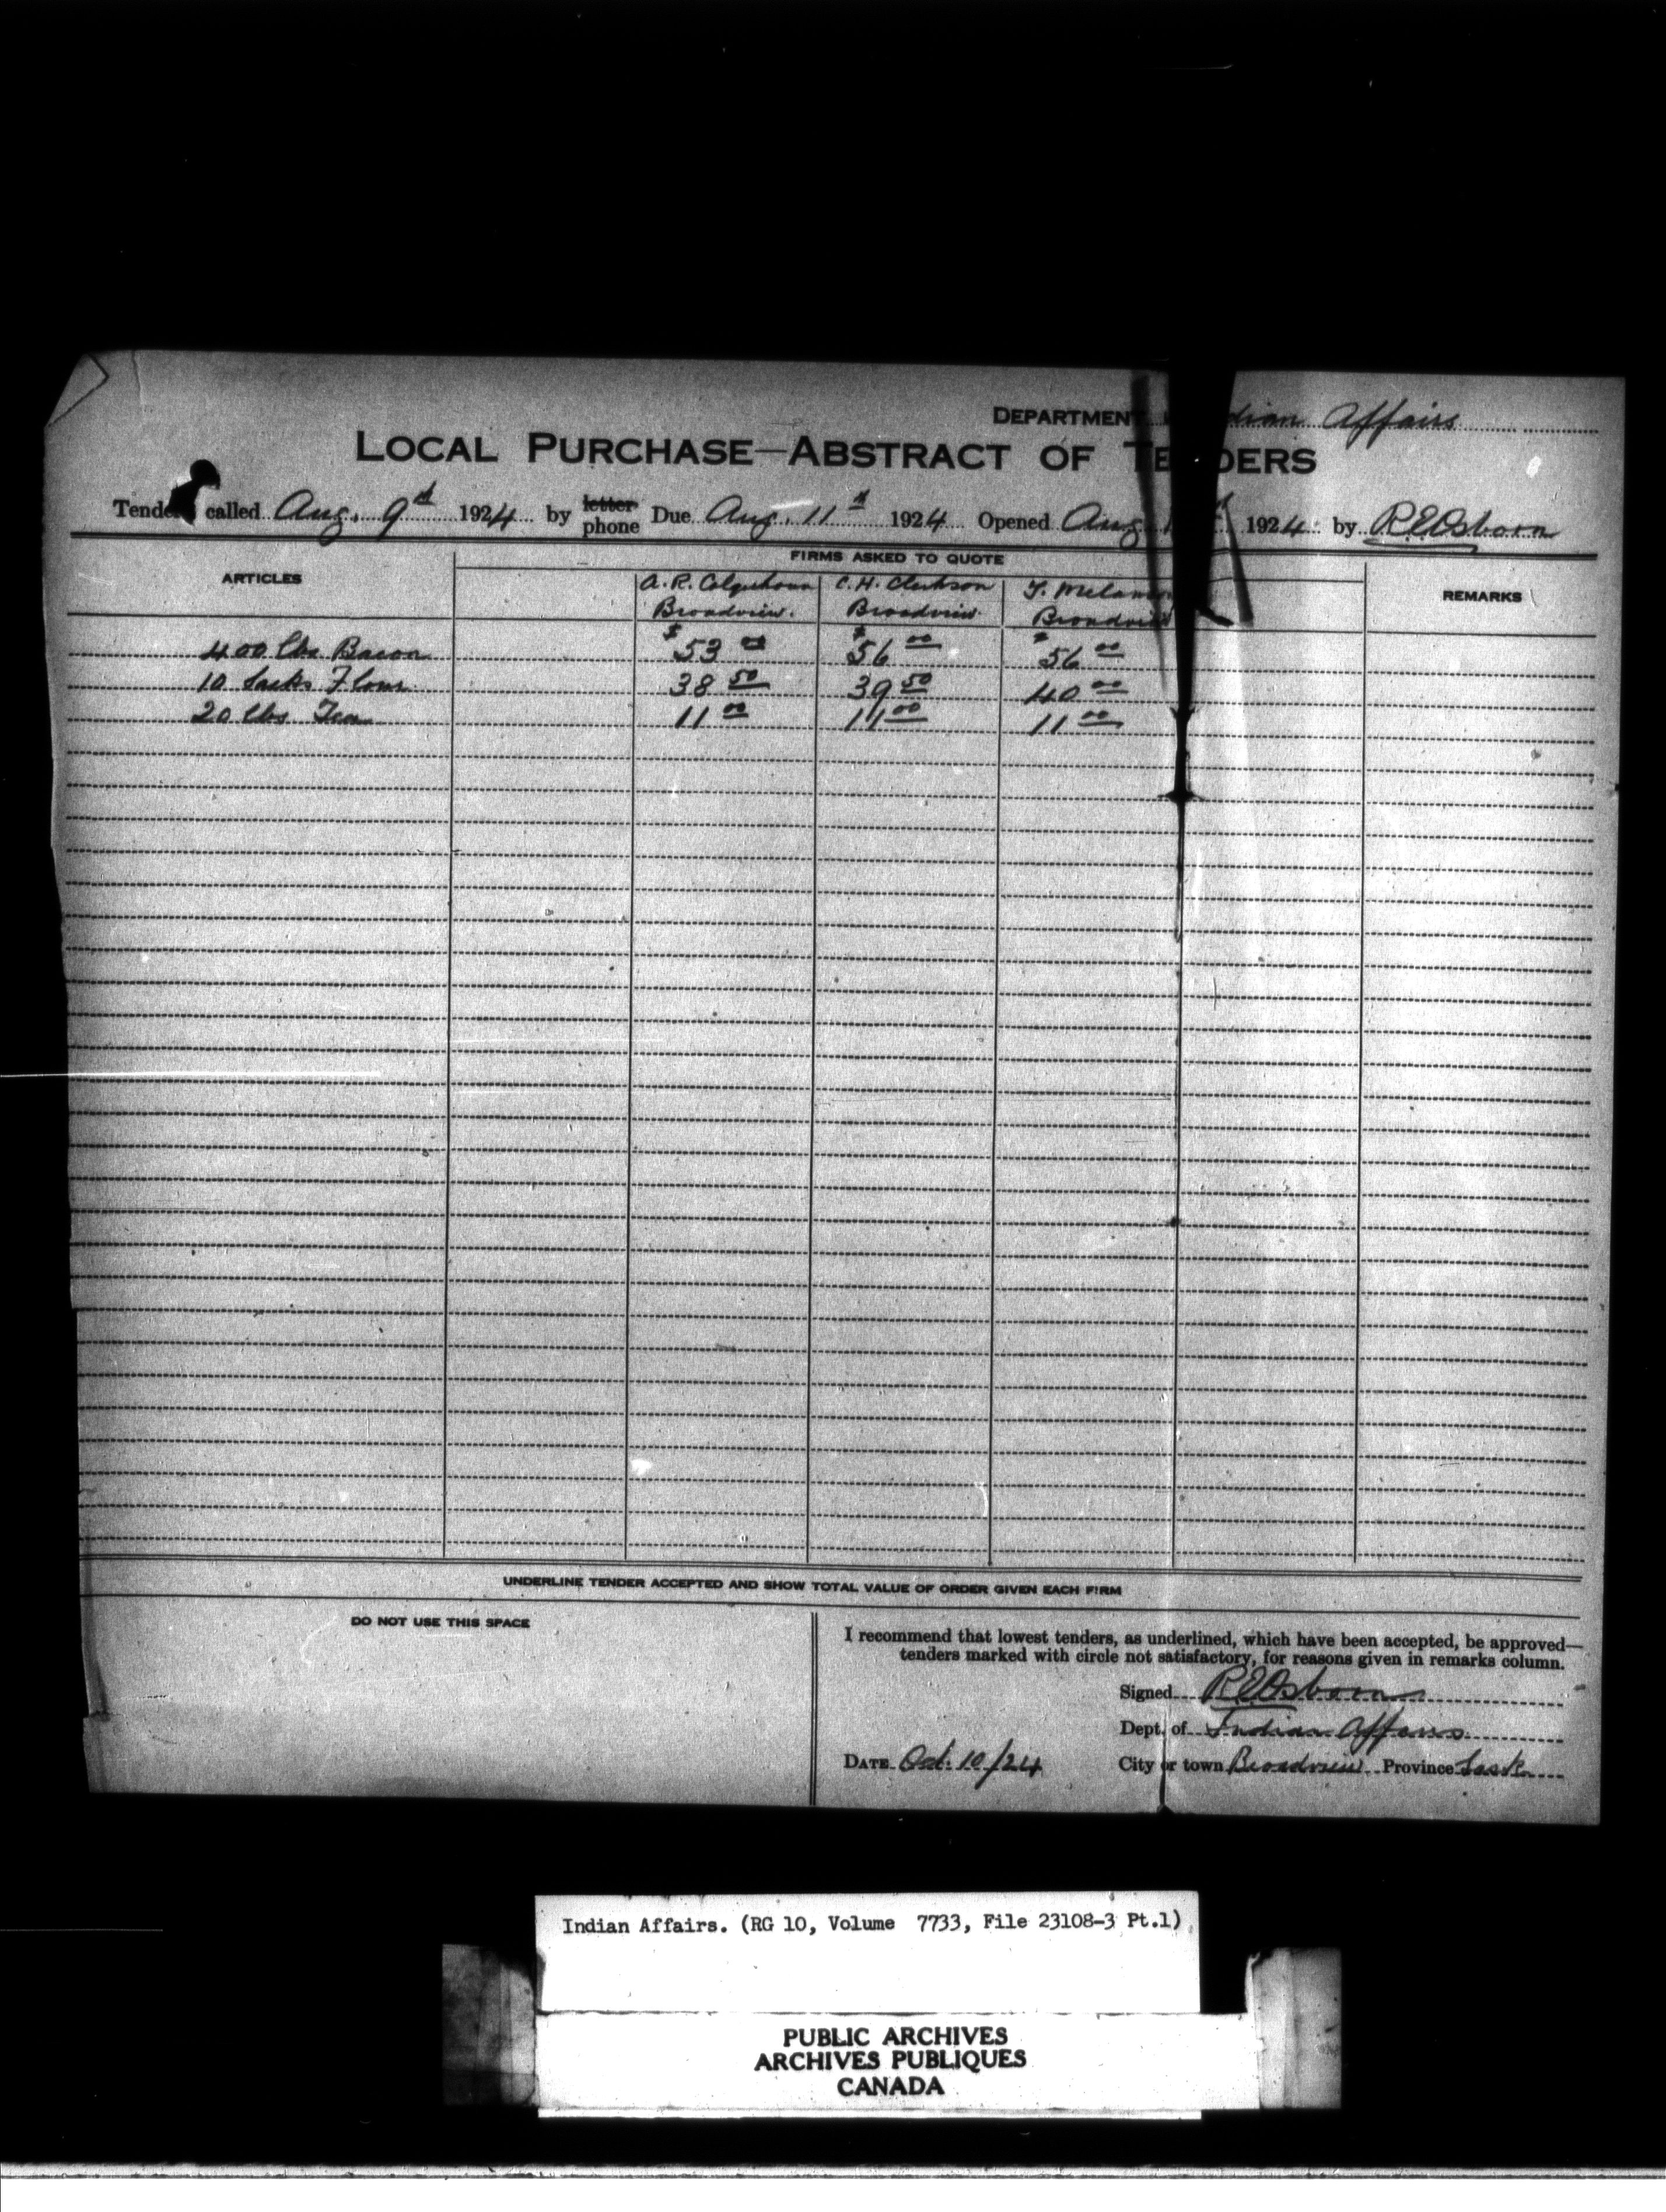 DEPARTMENT Indian Affairs
LOCAL PURCHASE—ABSTRACT OF TENDERS
Tenders called Aug. 9th 1924 by letter phone Due Aug. 11th 1924 Opened Aug. 1924 by R.E.Osborn
FIRMS ASKED TO QUOTE
ARTICLES A.R. Colquhoun C.H. Clarkson REMARKS
Broadview. Broadview. Broadview
400 lbs Bacon $53 00 $56 00 $56 00
10 Sacks Flour 38 50 39 50 40 00
20 lbs Tea 11 00 11 00 11 00
UNDERLINE TENDER ACCEPTED AND SHOW TOTAL VALUE OF ORDER GIVEN EACH FIRM
DO NOT USE THIS SPACE
I recommend that lowest tenders, as underlined, which have been accepted, be approved—
tenders marked with circle not satisfactory, for reasons given in remarks column.
Signed R.E.Osborn
Dept. of Indian Affairs
DATE Oct. 10/24 City or town Broadview Province Sask
Indian Affairs. (RG 10, Volume 7733, File 23108-3 Pt.1)
PUBLIC ARCHIVES
ARCHIVES PUBLIQUES
CANADA